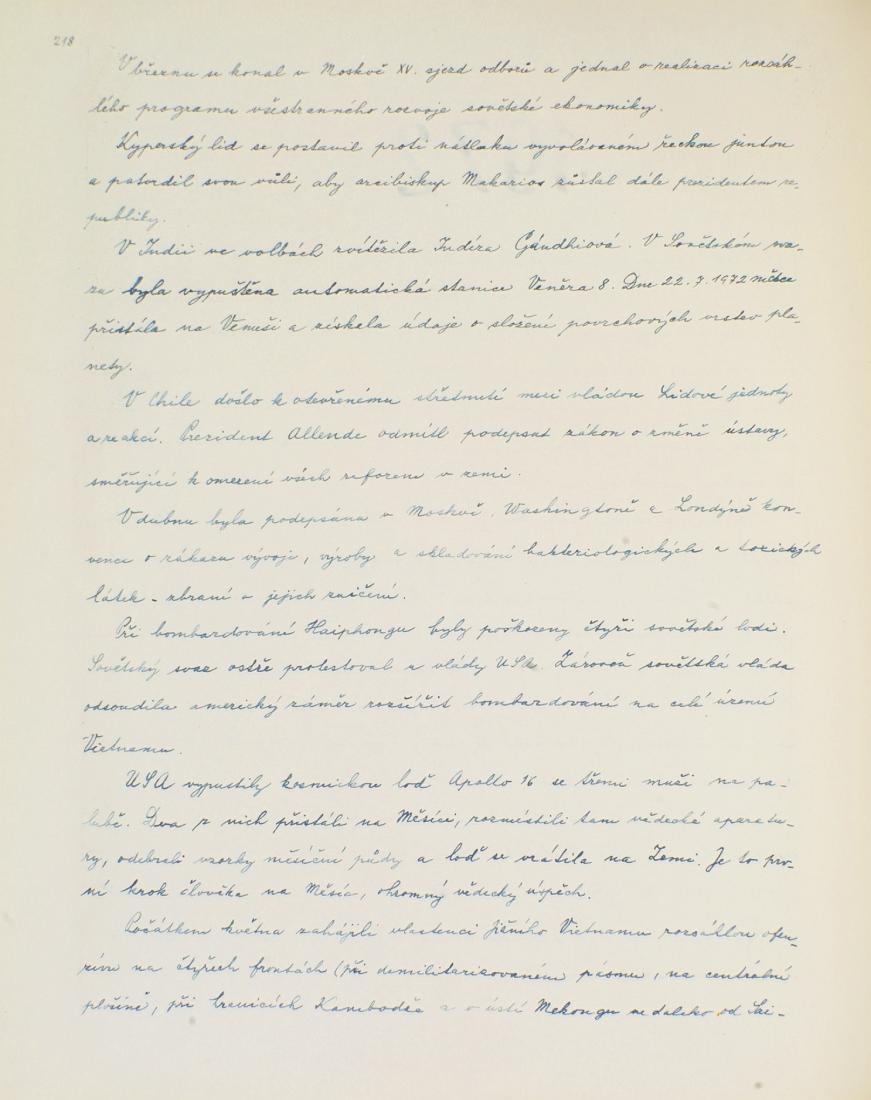 218
V březnu se konal v Moskvě XV. sjezd odborů a jednal o realizaci rozsáh-
lého programu všestranného rozvoje sovětské ekonomiky.
Kyperský lid se postavil proti nátlaku vyvolávaném řeckou juntou
a potvrdil svou vůli, aby arcibiskup Makarios zůstal dále prezidentem re-
publiky.
V Indii ve volbách zvítězila Indíra Gándhiová. V Sovětském sva-
zu byla vypuštěna automatická stanice Veněra 8. Dne 22.7.1972 měkce
přistála na Venuši a získala údaje o složení povrchových vrstev pla-
nety.
V Chile došlo k otevřenému střetnutí mezi vládou Lidové jednoty
a reakcí. Prezident Allende odmítl podepsat zákon o změně ústavy,
směřující k omezení všech reforem v zemi.
V dubnu byla podepsána v Moskvě, Washingtoně a Londýně kon-
vence o zákazu vývoje, výroby a skladování bakteriologických a toxických
látek - zbraní a jejich zničení.
Při bombardování Haiphongu byly poškozeny čtyři sovětské lodi.
Sovětský svaz ostře protestoval u vlády USA. Zároveň sovětská vláda
odsoudila americký záměr rozšířit bombardování na celé území
Vietnamu.
USA vypustily kosmickou loď Apollo 16 se třemi muži na pa-
lubě. Dva z nich přistáli na Měsíci, rozmístili tam vědecké aparatu-
ry, odebrali vzorky měsíční půdy a loď se vrátila na Zemi. Je to prv-
ní krok člověka na Měsíc, ohromný vědecký úspěch.
Počátkem května zahájili vlastenci Jižního Vietnamu rozsáhlou ofen-
zívu na čtyřech frontách (při demilitarizovaném pásmu, na centrální
plošině, při hranicích Kambodže a v ústí Mekongu nedaleko od Sai-